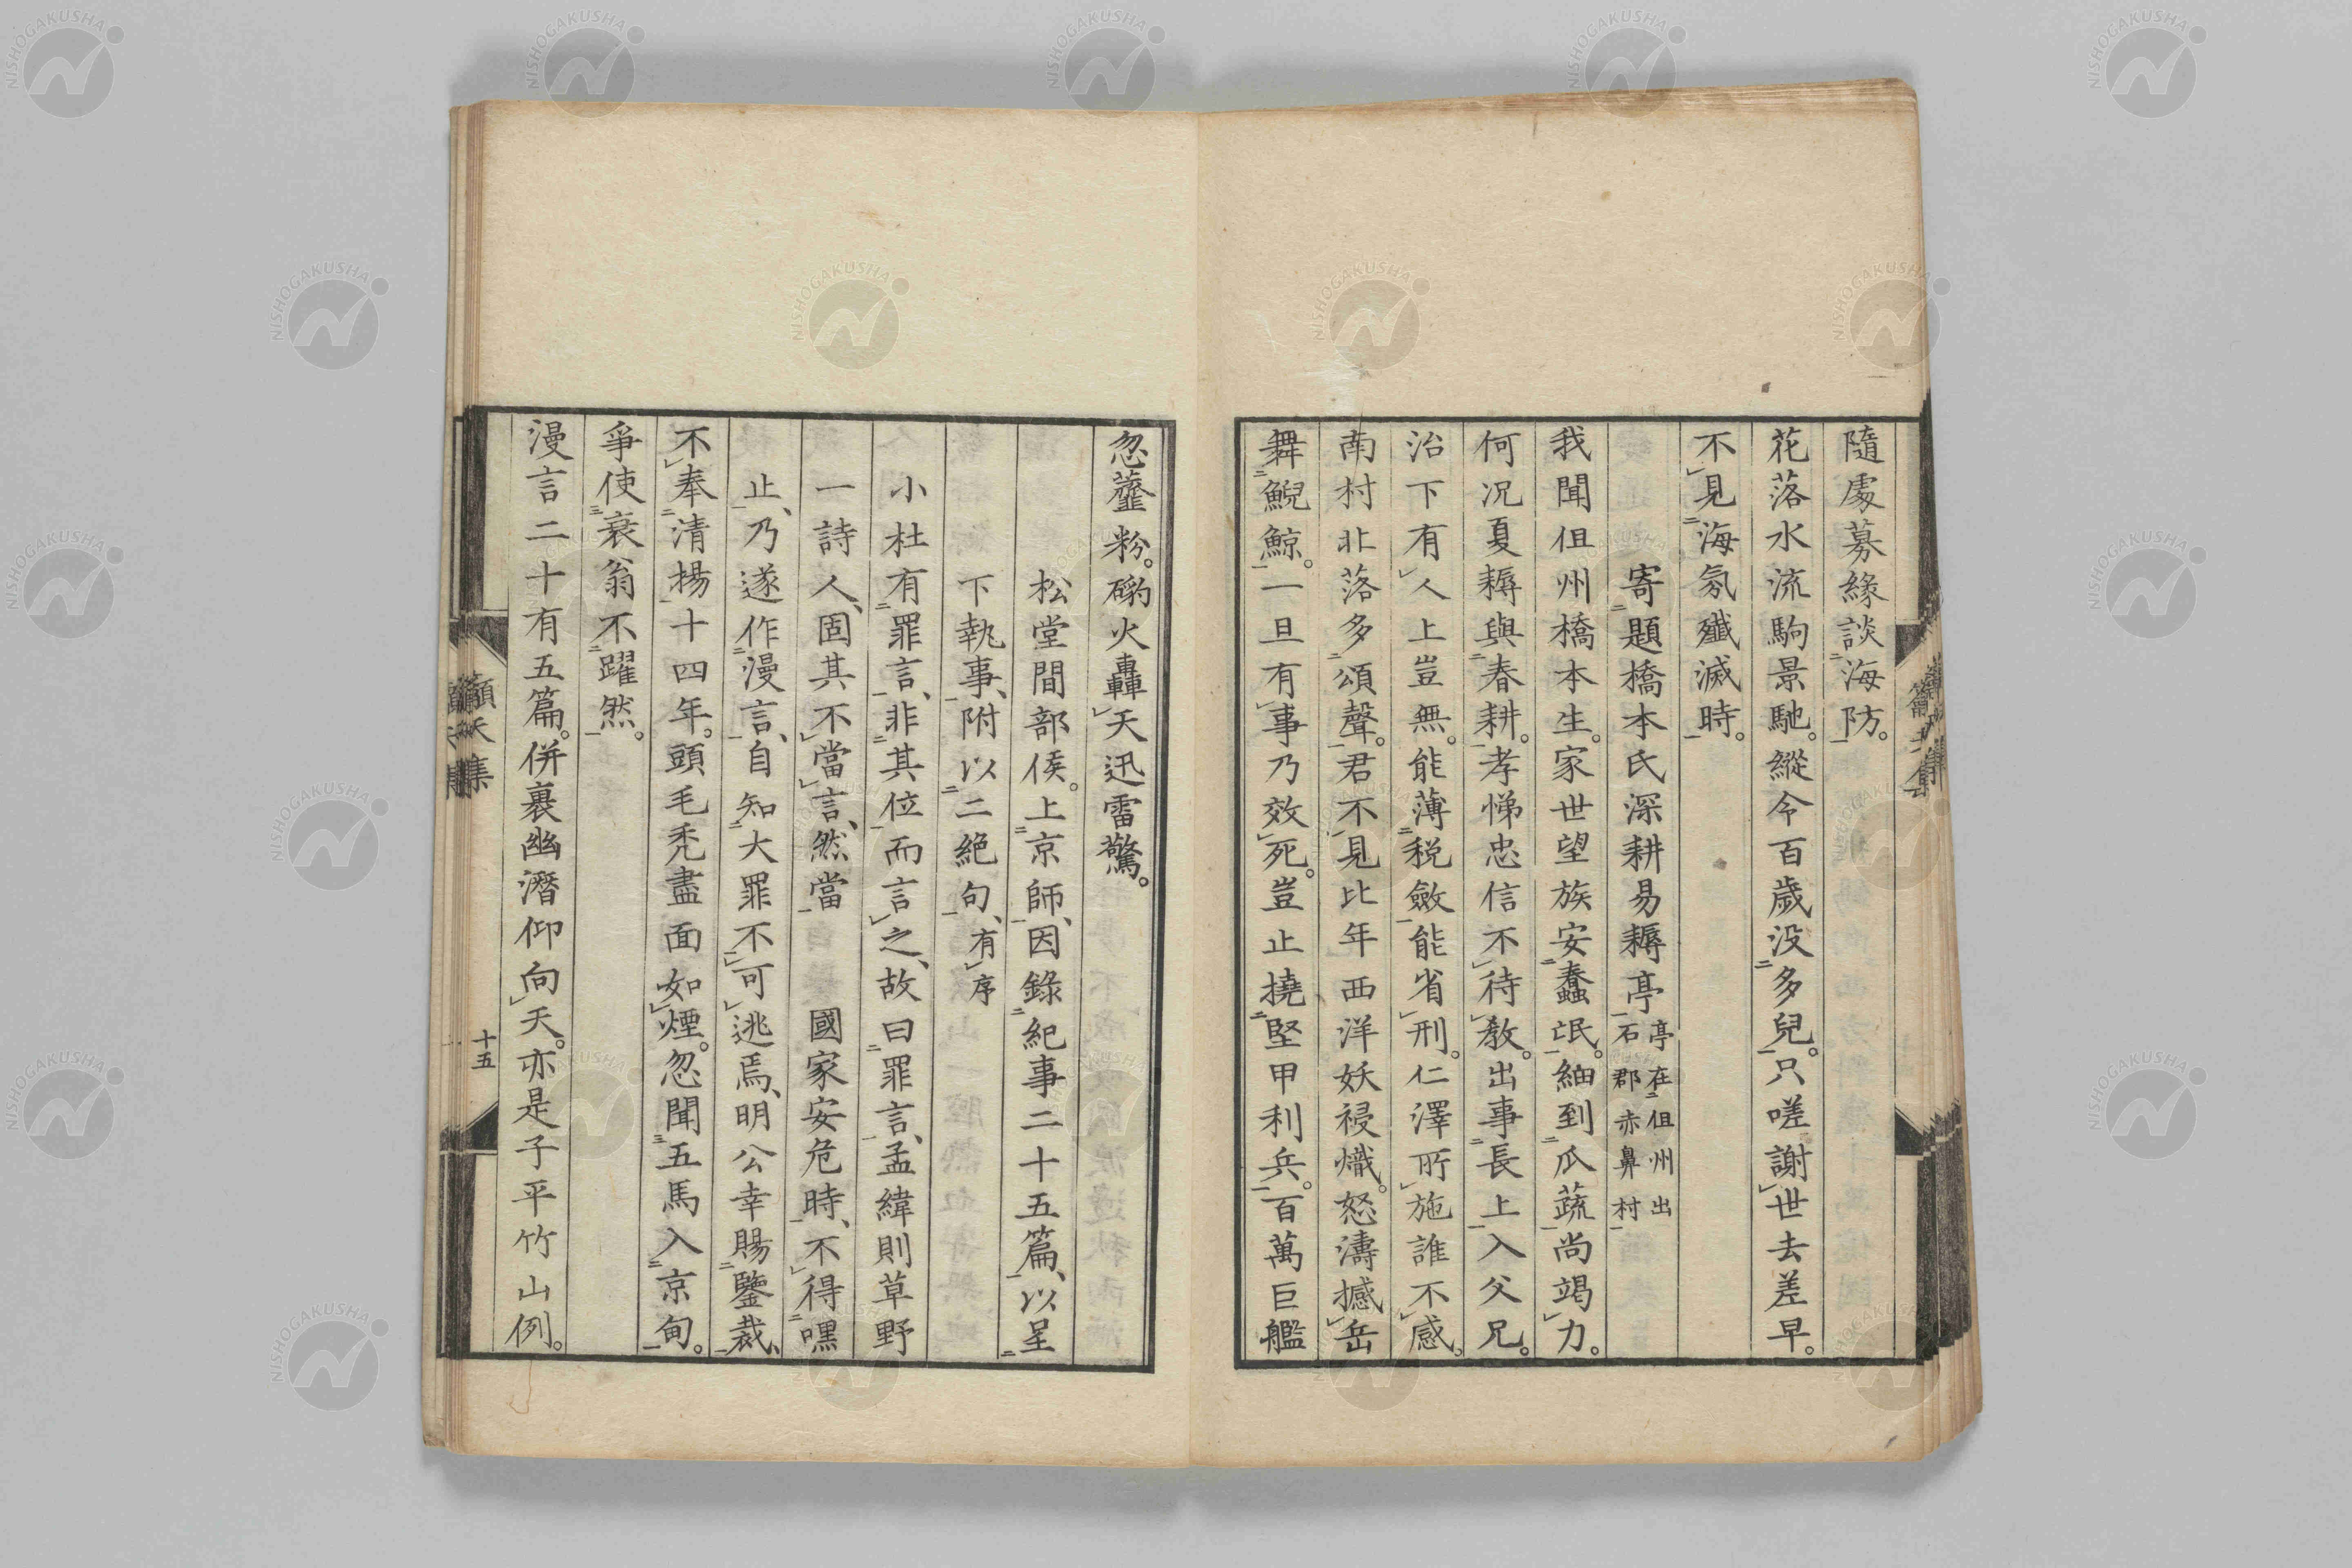 隨處募緣談海防。
花落水流駒景馳。縱令百歲没多兒。只嗟謝世去差早。
不見海氛殲滅時。
寄題橋本氏深耕易耨亭亭在但州出石郡赤鼻村
我聞但州橋本生。家世望族安蠢氓。紬到瓜蔬尚竭力。
何况夏耨與春耕。孝悌忠信不待教。出事長上入父兄。
治下有人上豈無。能薄税斂能省刑。仁澤所施誰不感。
南村北落多頌聲。君不見比年西洋妖祲熾。怒濤撼岳
舞鯢鯨。一旦有事乃效死。豈止撓堅甲利兵。百萬巨艦
忽虀粉。礮火轟天迅雷驚。
松堂間部侯。上京師、因錄紀事二十五篇、以呈
下執事、附以二絶句、有序
小杜有罪言、非其位而言之、故曰罪言、孟緯則草野
一詩人、固其不當言、然當 國家安危時、不得嘿
止、乃遂作漫言、自知大罪不可逃焉、明公幸賜鑒裁、
不奉清揚十四年。頭毛禿盡面如煙。忽聞五馬入京甸。
爭使衰翁不躍然。
漫言二十有五篇。併裹幽潛仰向天。亦是子平竹山例。
籲天集
十五
NISHOGAKUSHA